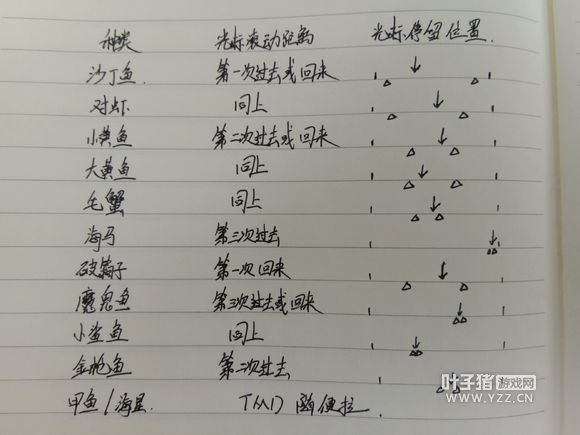 种类 光标滚动距离 光标停留位置
沙丁鱼. 第一次过去或回来
对虾 同上
小黄鱼 第二次过去或回来
大黄鱼 同上
毛蟹 同上
海马 第三次过去
破鞋子 第一次回来
魔鬼鱼 第三次过去或回来
小鲨鱼 同上
金枪鱼 第二次过去
甲鱼/海星. 随便拉.
叶子猪游戏网
WWW.YZZ.CN